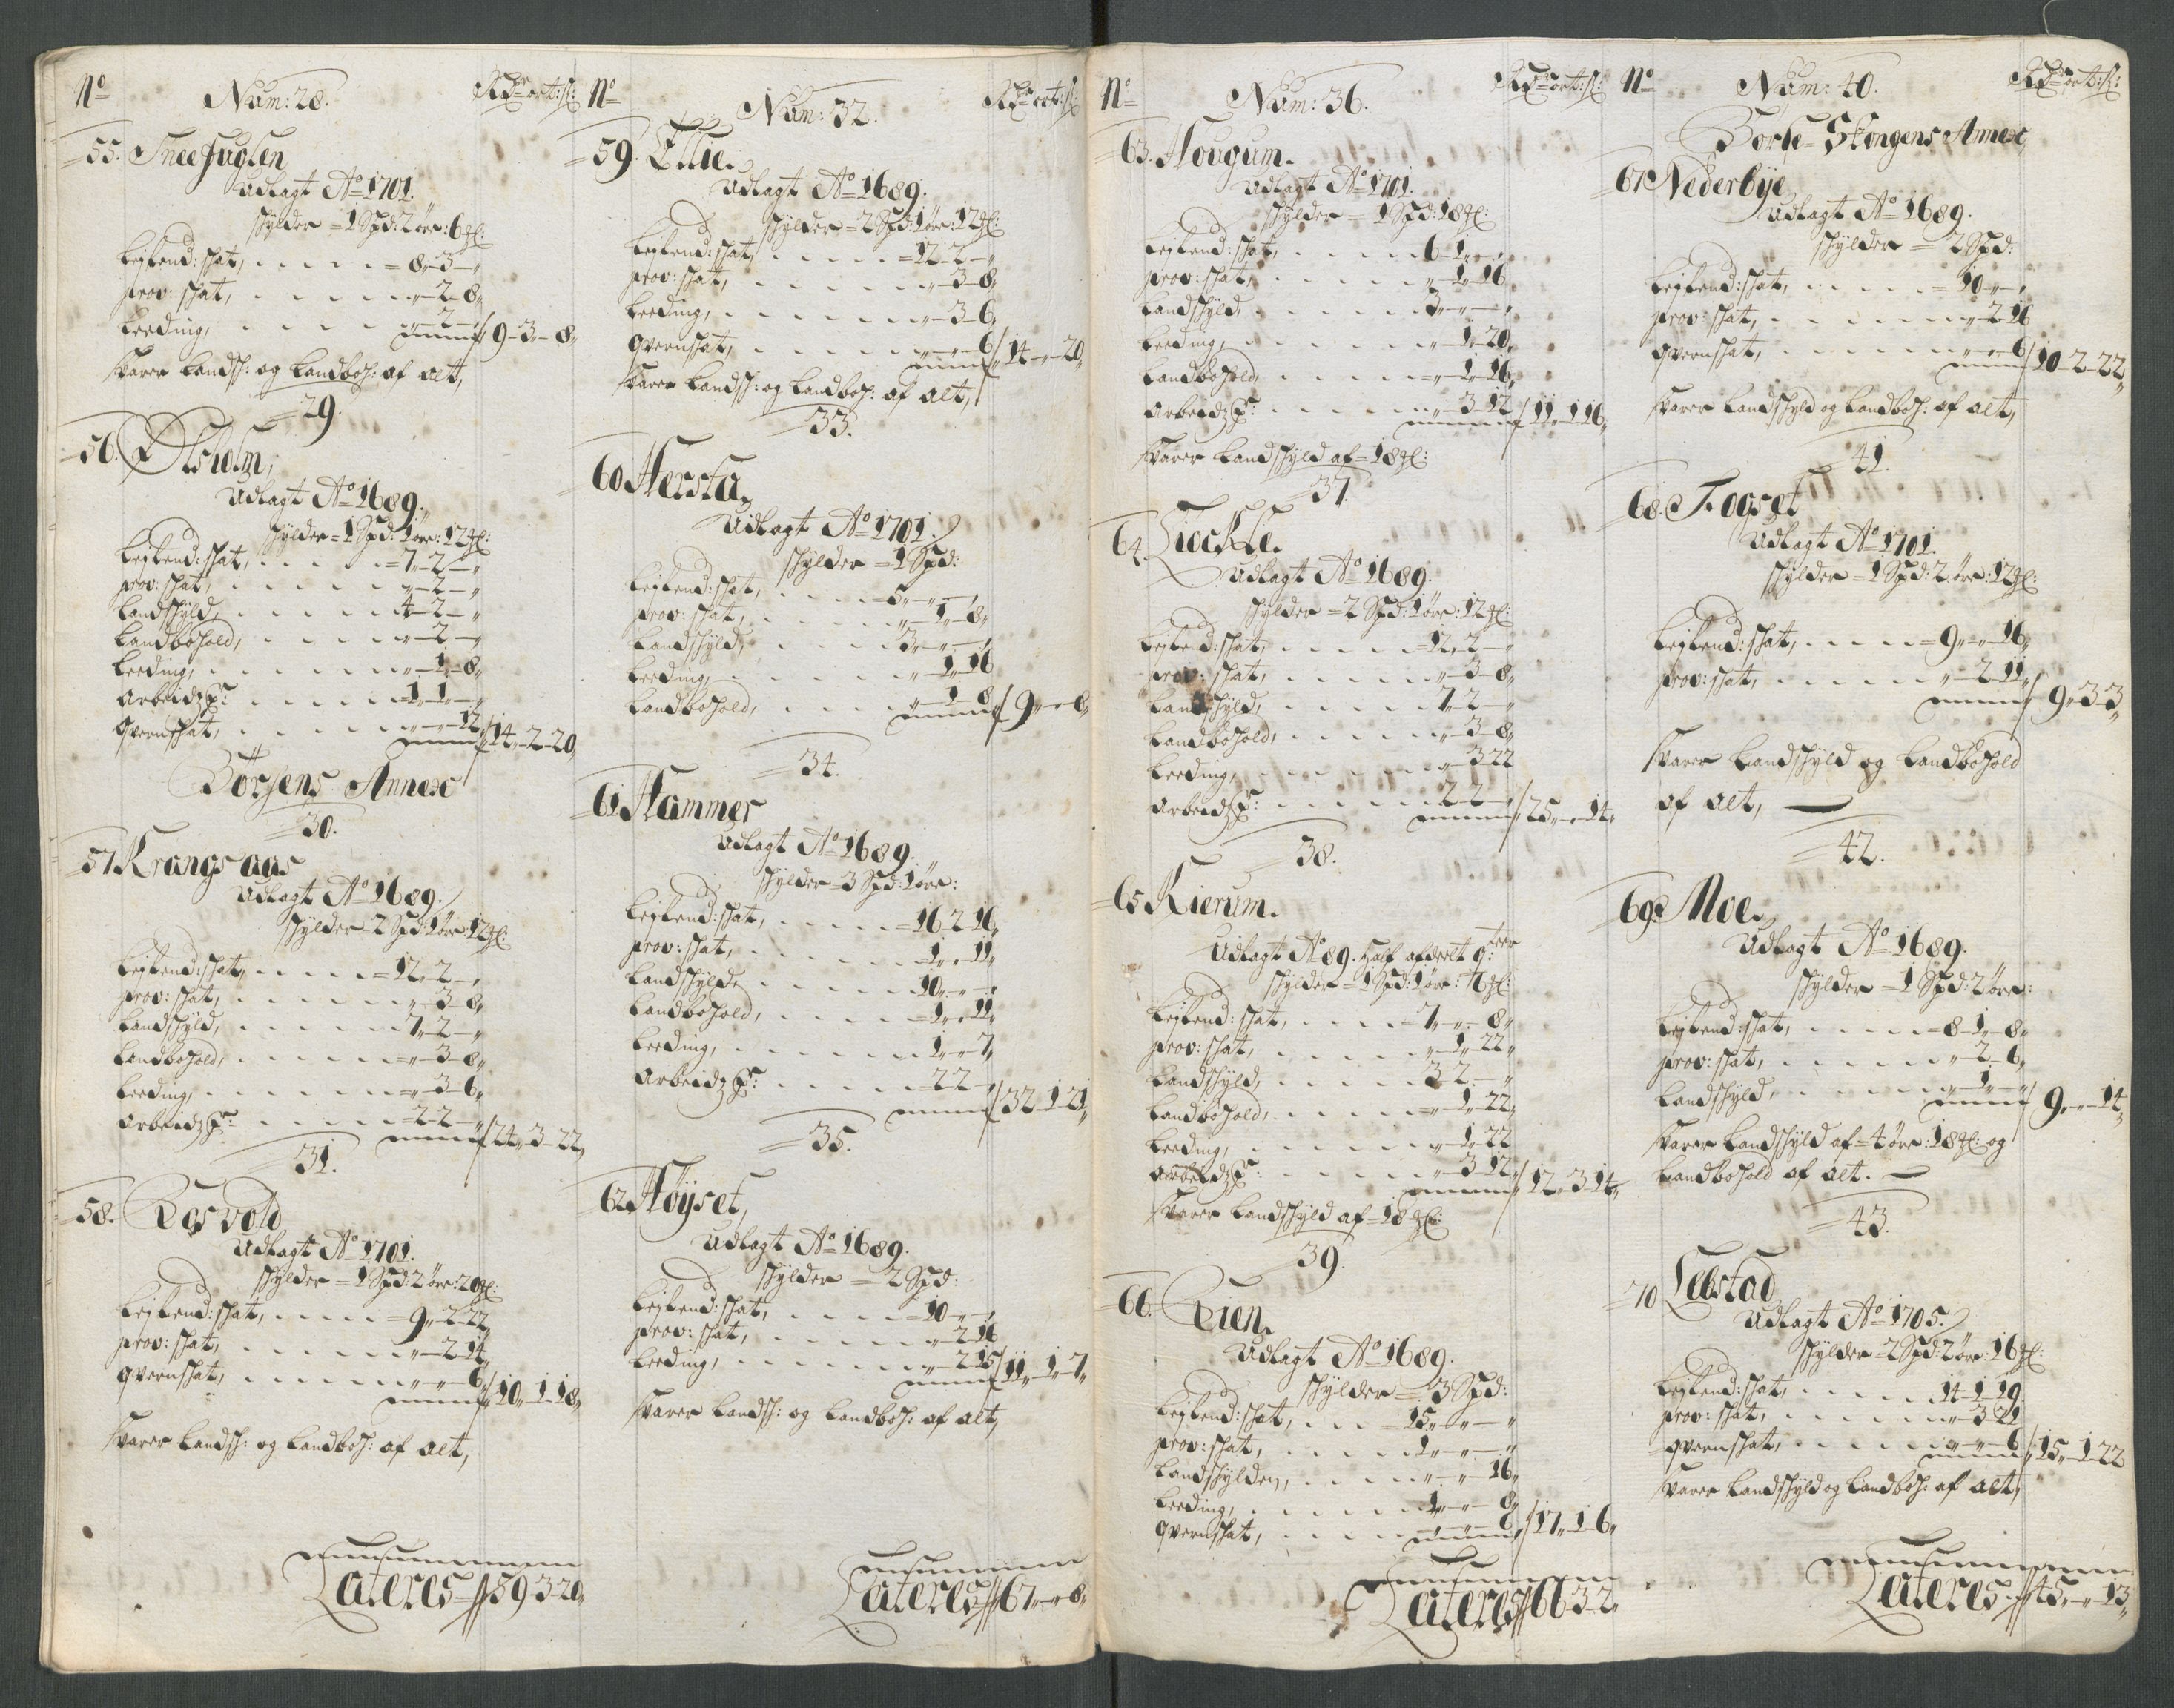 No Num: 28. Rdr ort: ſl:
55. Sneefuglen
Udlagt Ao 1701.
ſkylder = 1 Spd: 2 öre: 6 gl:
Lejlend: ſkat, . . . . = 8 „ 3 — „
prov: ſkat, . . . . . „ — 2 — 8 „
Leeding, . . . . . „ — 2 — „ / 9 — 3 — 8 „
ſvarer Landſk: og Landboh: af alt,
= 29.
56. Olsholm,
Udlagt Ao 1689.
ſkylder = 1 Spd: 1 öre: 12 gl:
Lejlend: ſkat, . . . . = 7 „ 2 — „
prov: ſkat, . . . . . „ — 2 — „
Landſkyld, . . . . . 4 — 2 — „
Landbohold, . . . . . „ — 2 — „
Leeding, . . . . . „ — 1 — 8 „
Arbeidz Pr: . . . . = 1 „ 1 — „
qvernſkat, . . . . . „ — „ — 12 / 14 „ — 2 — 20 „
Börſens Annex
= 30.
57 Krangsaas
Udlagt Ao 1689.
ſkylder = 2 Spd: 1 öre: 12 gl:
Lejlend: ſkat, . . . . = 12 „ 2 — „
prov: ſkat, . . . . . „ — 3 — 8 „
Landſkyld, . . . . . 7 „ — 2 — „
Landbohold, . . . . . = „ — 3 — 8 „
Leeding, . . . . . = „ — 3 — 6 „
Arbeidz Pr: . . . . . = 2 — 2 — „ / 24 „ 3 — 22 „
= 31.
58. Rosvold
Udlagt Ao 1701.
ſkylder = 1 Spd: 2 öre: 20 gl:
Lejlend: ſkat, . . . . = 9 „ — 2 — 22 „
prov: ſkat, . . . . . „ — 2 — 14 „
qvernſkat, . . . . . „ — „ — 6 „ / 10 „ — 1 — 18 „
ſvarer Landſk: og Landboh: af alt,
Lateres // 59 — 3 — 20 „
No Num: 32. Rdr ort: ſl:
59. Ellie.
Udlagt Ao 1689.
ſkylder = 2 Spd: 1 öre: 12 gl:
Lejlend: ſkat, . . . . = 12 — 2 — „
prov: ſkat, . . . . . „ — 3 — 8 „
Leeding, . . . . . „ — 3 — 6 „
qvernſkat, . . . . . „ — „ — 6 / 14 — „ — 20 „
ſvarer Landſk: og Landboh: af alt,
= 33.
60 Hersta,
Udlagt Ao 1701.
ſkylder = 1 Spd:
Lejlend: ſkat, . . . . = 5 „ — „ — „
prov: ſkat, . . . . . „ — 1 — 8 „
Landſkyld, . . . . . 3 „ — „ — „
Leeding, . . . . . „ — 1 „ 16
Landbohold, . . . . . „ — 1 — 8 / 9 „ — „ — 8 „
= 34.
61 Hammer
Udlagt Ao 1689.
ſkylder = 3 Spd: 1 öre:
Lejlend: ſkat, . . . . = 16 „ 2 — 16 „
prov: ſkat, . . . . . = 1 „ — „ 11 „
Landſkyld, . . . . . 10 „ — „ — „
Landbohold, . . . . . = 1 „ — „ 11 „
Leeding, . . . . . 1 „ — „ — 7 „
Arbeidz Pr: . . . . . = 2 — 2 — „ / 32 — 1 — 21 „
= 35.
62. Höyset,
Udlagt Ao 1689.
ſkylder = 2 Spd:
Lejlend: ſkat, . . . . = 10 — „ — „
prov: ſkat, . . . . . „ — 2 — 16
Leeding, . . . . . „ — 2 — 15 / 11 „ — 1 „ — 7 „
ſvarer Landſk: og Landboh: af alt,
Lateres // 67 „ — „ — 8 „
No Num: 36. Rdr ort: ſl:
63. Hougum.
Udlagt Ao 1701.
ſkylder = 1 Spd: 18 gl:
Lejlend: ſkat, . . . . 6 — 1 „ — „
prov: ſkat, . . . . . „ — 1 „ — 16
Landſkyld, . . . . . 3 „ — „ — „
Leeding, . . . . . „ — 1 „ 20 „
Landbohold, . . . . . = „ — 1 „ — 16 „
Arbeidz Pr: . . . . . „ — 3 — 12 / 11 „ — 1 16 „
ſvarer Landſkyld af = 18 gl:
= 37.
64. Liockle.
Udlagt Ao 1689.
ſkylder = 2 Spd: 1 öre: 12 gl:
Lejlend: ſkat, . . . . = 12 „ 2 — „
prov: ſkat, . . . . . „ — 3 — 8 „
Landſkyld, . . . . . 7 „ 2 — „
Landbohold, . . . . . „ — 3 — 8 „
Leeding, . . . . . „ — 3 22
Arbeidz Pr: . . . . . 2 „ 2 — „ / 25 „ — „ 14 „
= 38.
65 Kierum.
Udlagt Ao 89. Half afdeelt
ſkylder = 1 Spd: 1 öre: 6 gl:
Lejlend: ſkat, . . . . = 7 „ — „ — 8 „
prov: ſkat, . . . . . „ — 1 „ 22 „
Landſkyld, . . . . . 3 2 — „
Landbohold, . . . . . = „ — 1 „ 22 „
Leeding, . . . . . „ — 1 „ 22
Arbeidz Pr: . . . . . „ — 3 12 „ / 12 „ 3 14 „
ſvarer Landſkyld af = 18 gl:
39.
66. Rien.
Udlagt Ao 1689.
ſkylder = 3 Spd:
Lejlend: ſkat, . . . = 15 „ — „ — „
prov: ſkat, . . . . 1 „ — „ — „
Landſkylden, . . . . „ — „ — 16 „
Leeding, . . . . . 1 „ — „ — 8 „
qvernſkat, . . . . . „ — „ — 8 / 17 „ — 1 — 6 „
Lateres // 66 3 — 2 „
No Num: 40. Rdr ort: ſl:
Börſe = Skongens Annex,
67. Nederbye,
Udlagt Ao 1689.
ſkylder = 2 Spd:
Lejlend: ſkat, . . . . = 10 „ — „ — „
prov: ſkat, . . . . . „ — 2 — 16
qvernſkat, . . . . . „ — „ — 6 / 10 — 2 — 22 „
ſvarer Landſkyld og Landboh: af alt,
41.
68. Fogset
Udlagt Ao 1701.
ſkylder = 1 Spd: 2 öre: 12 gl:
Lejlend: ſkat, . . . . = 9 „ — „ — 16 „
prov: ſkat, . . . . . „ — 2 11 „ / 9 „ — 3 — 3 „
ſvarer Landſkyld og Landbohold
af alt,
= 42.
69. Moe.
Udlagt Ao 1689.
ſkylder = 1 Spd: 2 öre:
Lejlend: ſkat, . . . . = 8 — 1 „ — 8 „
prov: ſkat, . . . . . „ — 2 — 6 „
Landſkyld, . . . . . „ — 1 „ — „ / 9 „ — „ — 14 „
ſvarer Landſkyld af = 4 öre: 18 gl: og
Landbohold af alt.
= 43.
70 Lebstad
Udlagt Ao 1705.
ſkylder = 2 Spd: 2 öre: 16 gl:
Lejlend: ſkat, . . . . 14 — 1 19
prov: ſkat, . . . . . „ — 3 21
qvernſkat, . . . . . „ — „ — 6 / 15 „ 1 — 22
ſvarer Landſkyld og Landboh: af alt,
Lateres // 45 „ — „ — 13 „